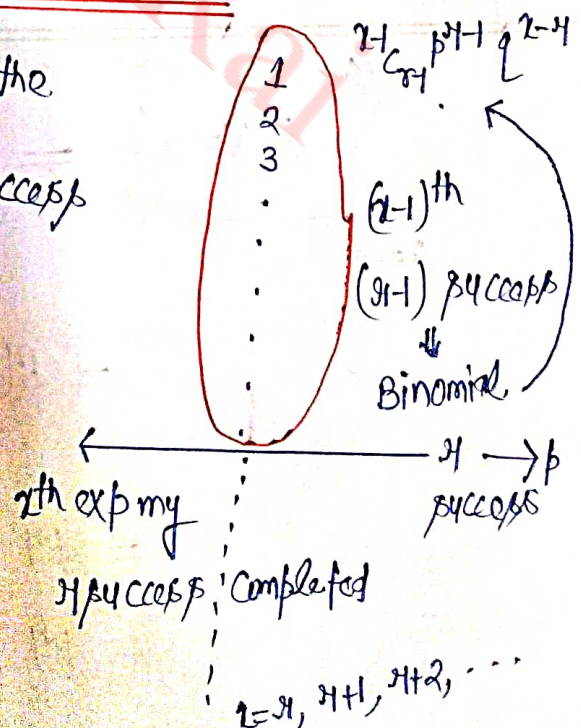 the
ccess
1
2
3
x-1Cr-1 p^r-1 q^x-r
(x-1)th
(r-1) success
⇓
Binomial
r → p
success
xth exp my
r success completed
x=r, r+1, r+2, ...